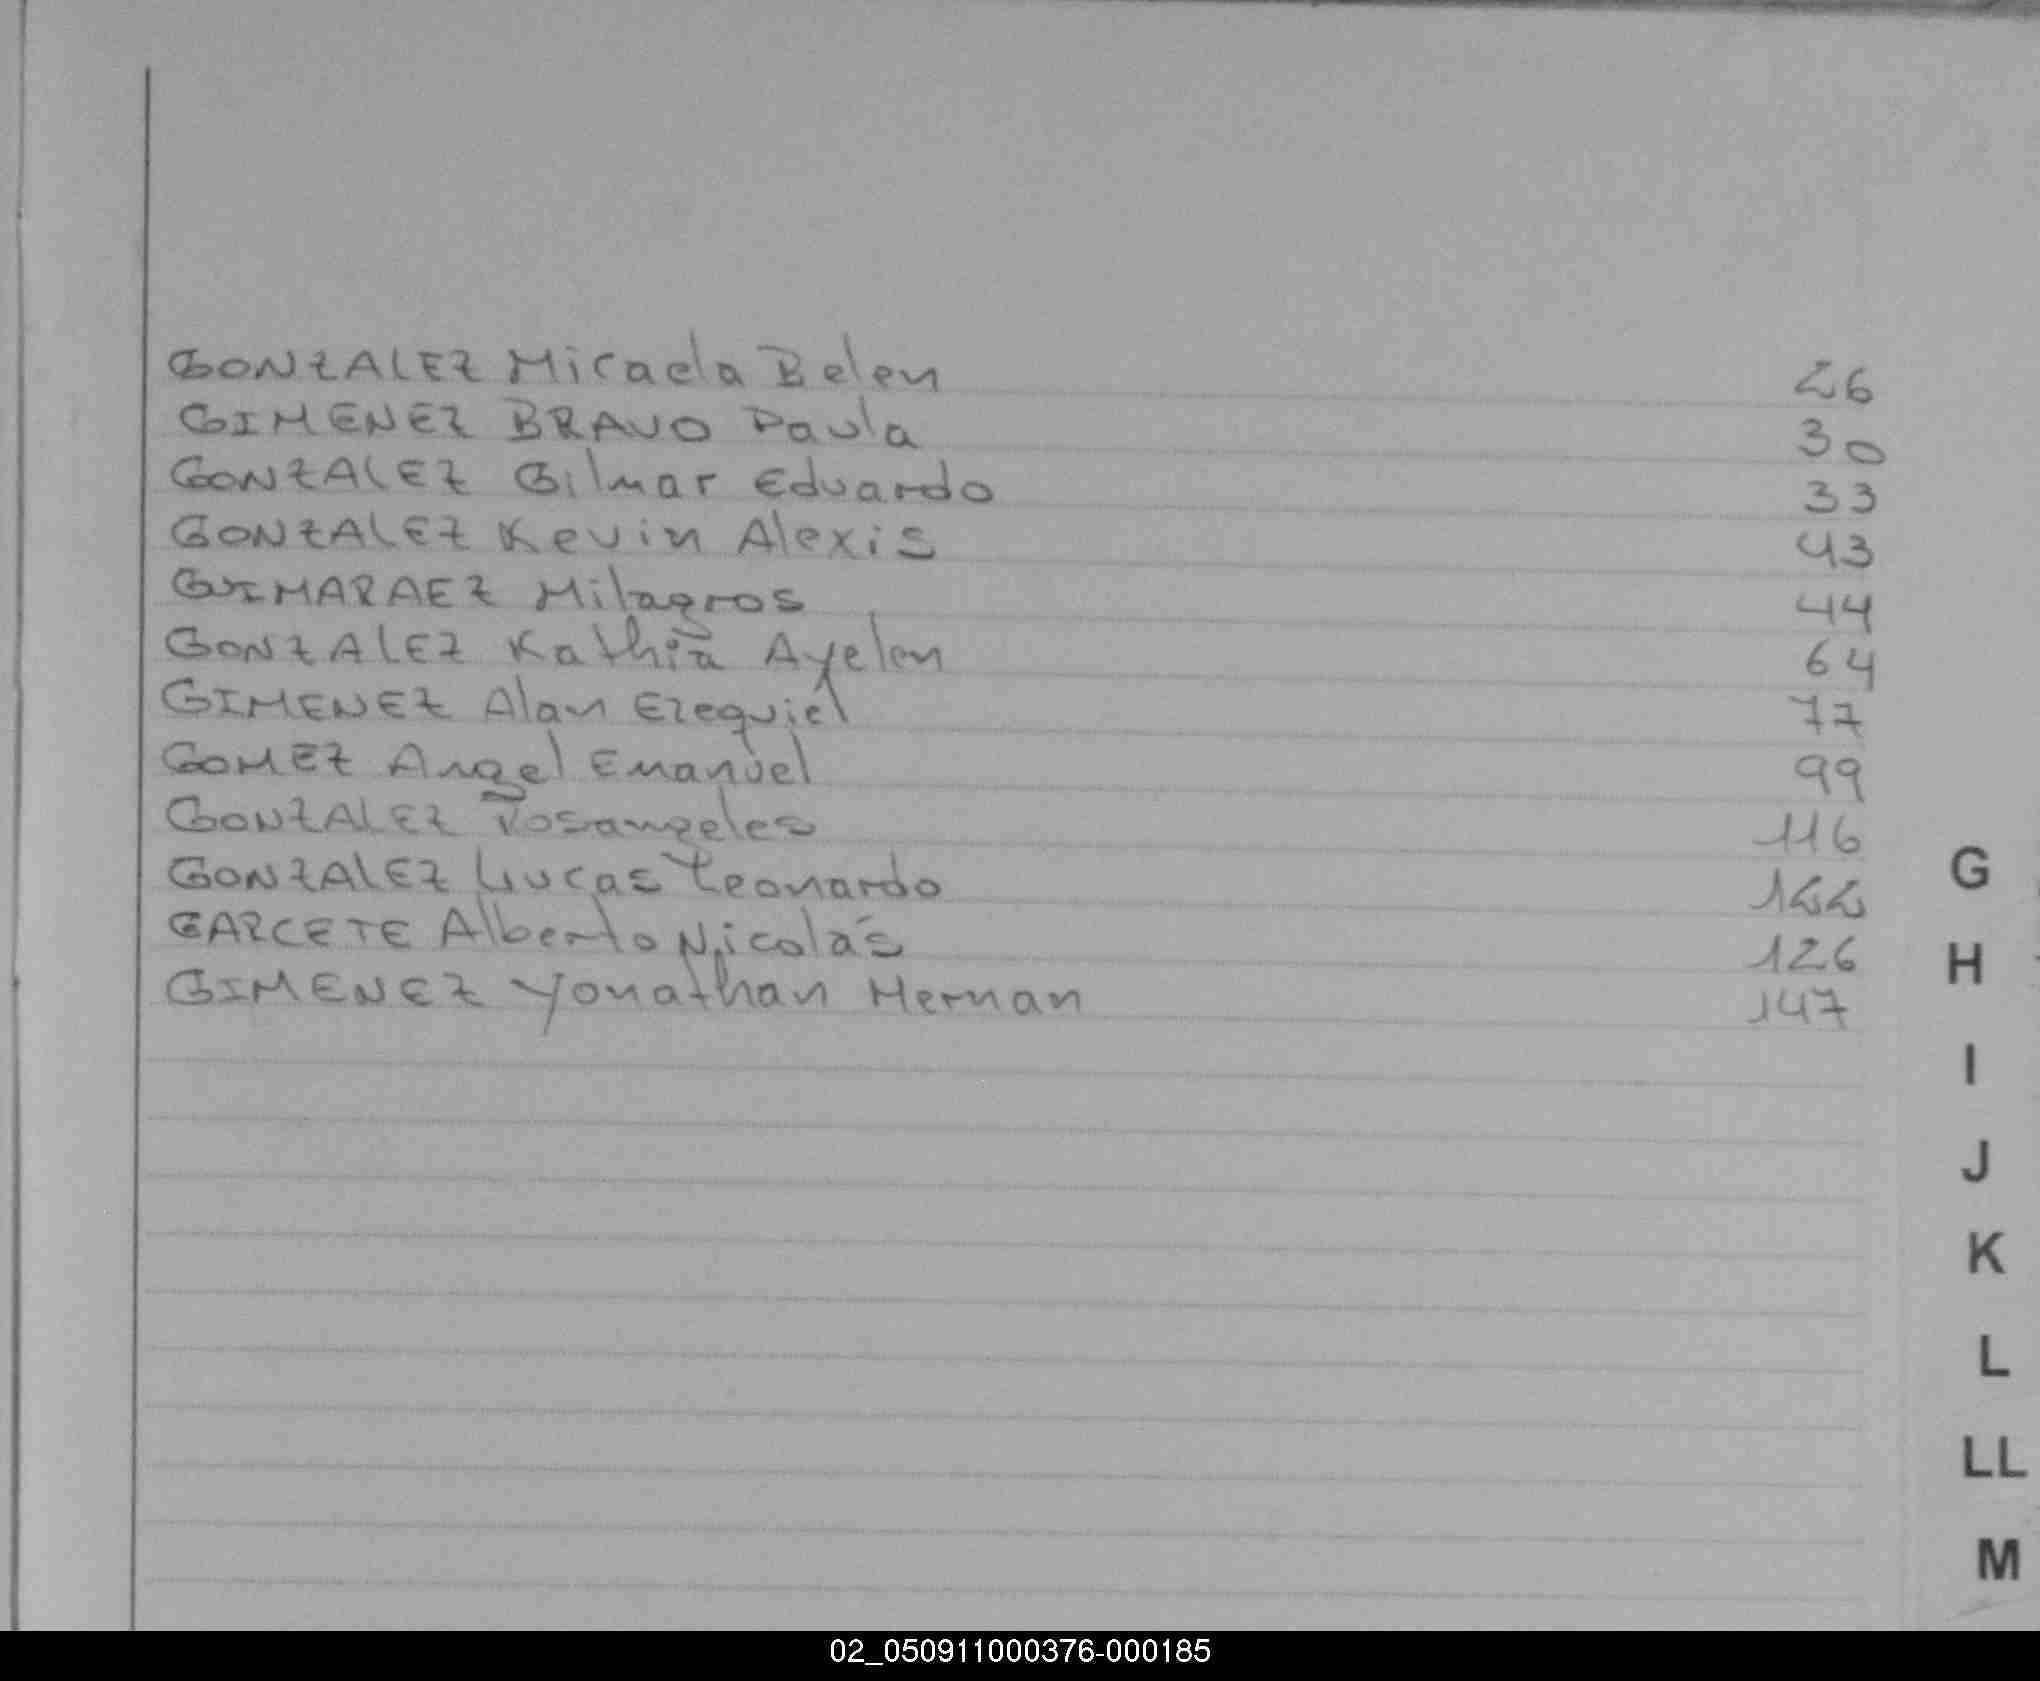 GONZALEZ Micaela Belen 26
GIMENEZ BRAVO Paula 30
GONZALEZ Gilmar Eduardo 33
GONZALEZ Kevin Alexis 43
GUIMARAEZ Milagros 44
GONZALEZ Kathia Ayelen 64
GIMENEZ Alan Ezequiel 77
GOMEZ Angel Emanuel 99
GONZALEZ Rosangeles 116
GONZALEZ Lucas Leonardo 122
GARCETE Alberto Nicolás 126
GIMENEZ Yonathan Hernan 147
G
H
I
J
K
L
LL
M
02_050911000376-000185